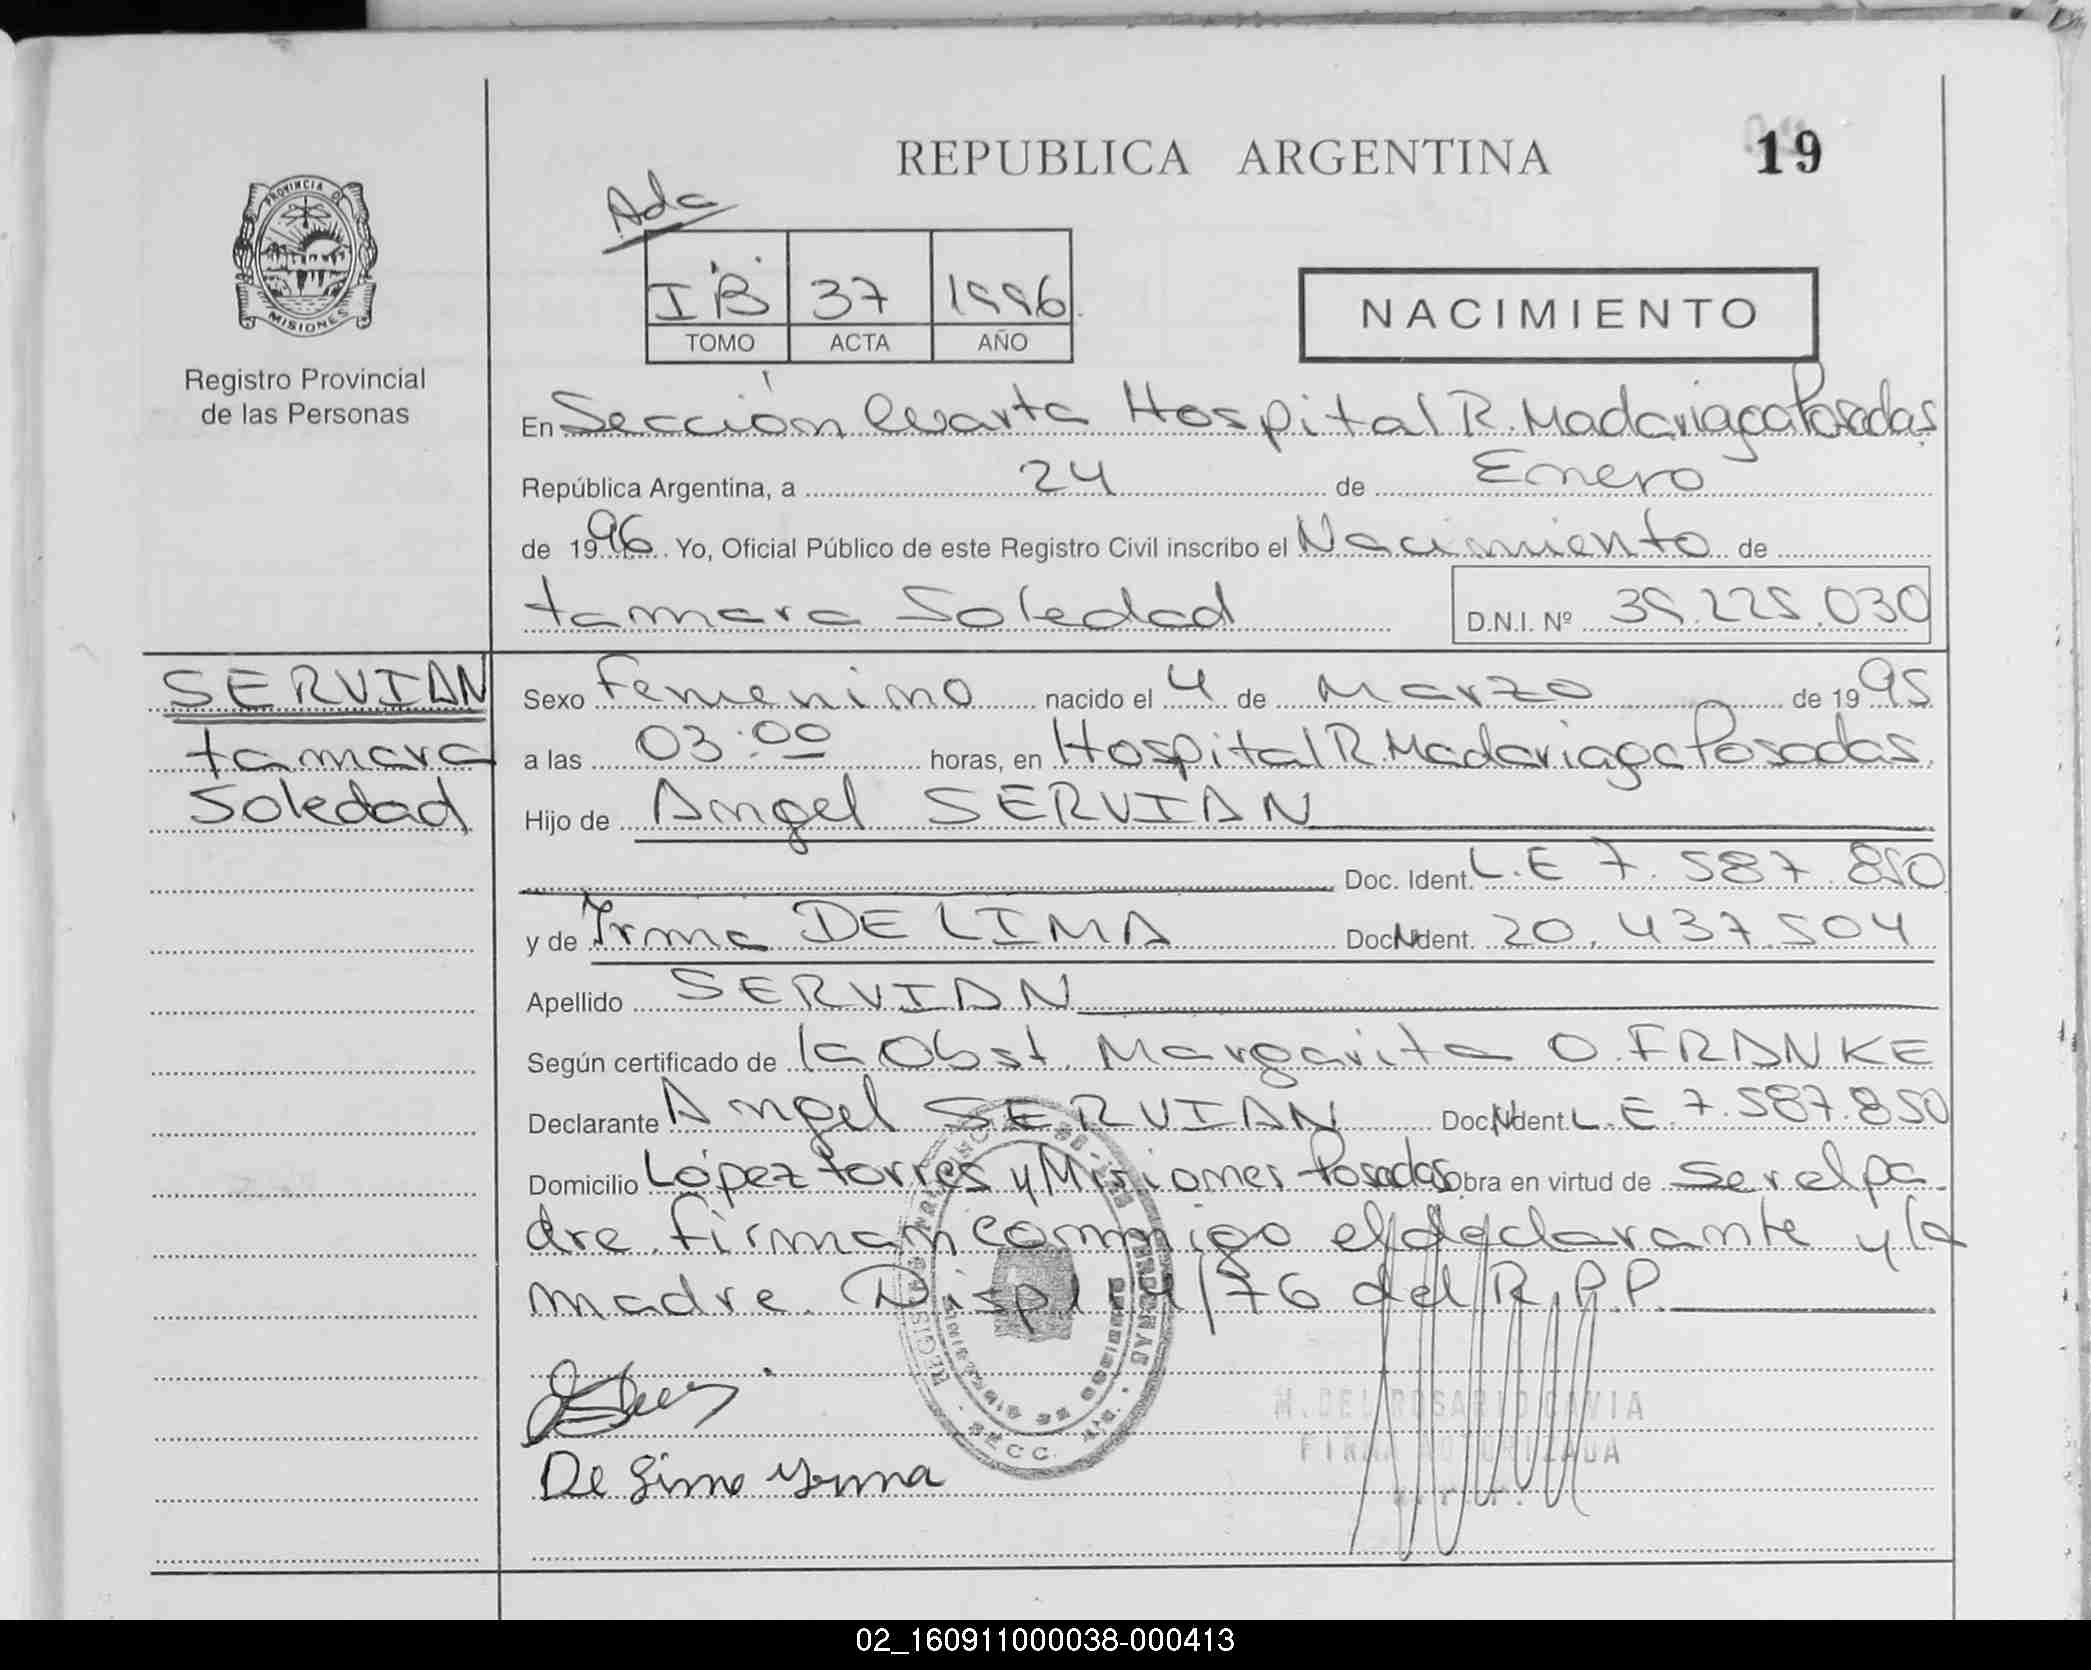 REPUBLICA ARGENTINA
19
Ada
PROVINCIA DE
MISIONES
Registro Provincial
de las Personas
I B 37 1996
TOMO ACTA AÑO
NACIMIENTO
En Sección Cuarta Hospital R. Madariaga Posadas
República Argentina, a 24 de Enero
de 1996. Yo, Oficial Público de este Registro Civil inscribo el Nacimiento de
tamara Soledad
D.N.I. Nº 39.225.030
SERVIAN
tamara
Soledad
Sexo Femenino nacido el 4 de Marzo de 1995
a las 03:00 horas, en Hospital R. Madariaga Posadas.
Hijo de Angel SERVIAN
Doc. Ident. L.E 7.587.850
y de Irma DE LIMA Doc. Ident. 20.437.504
Apellido SERVIAN
Según certificado de la Obst. Margarita O. FRANKE
Declarante Angel SERVIAN Doc. Ident L.E. 7.587.850
Domicilio López torres y Misiones Posadas obra en virtud de ser el pa-
dre. firman conmigo el declarante y la
madre. Disp 114/76 del R.P.P.
M. DEL ROSARIO GAVIA
FIRMA AUTORIZADA
De Lima Yrma
SECC.
02_160911000038-000413